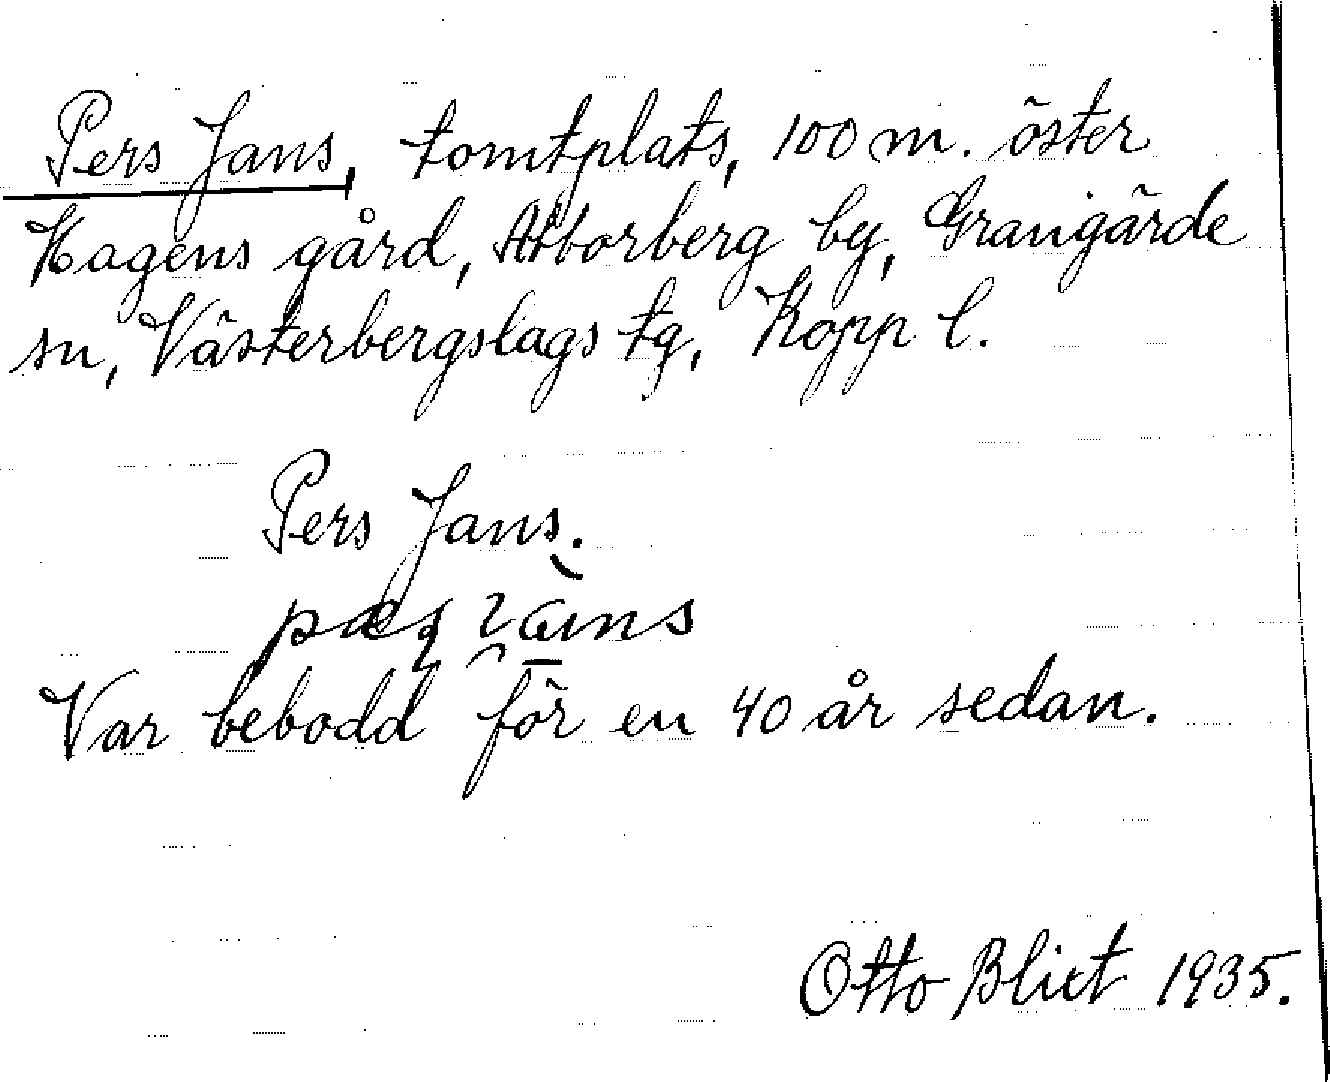 Pers Jans, tomtplats, 100 m. öster
Hagens gård, Abborberg by, Grangärde
sn, Västerbergslags tg, Kopp l.
Pers Jans.
Var bebodd för en 40 år sedan.
Otto Blixt 1935.